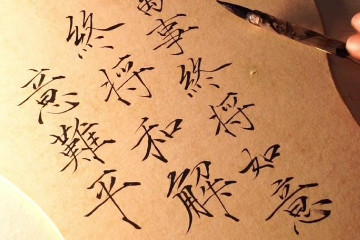 意難平
終将和解
萬事終将如意